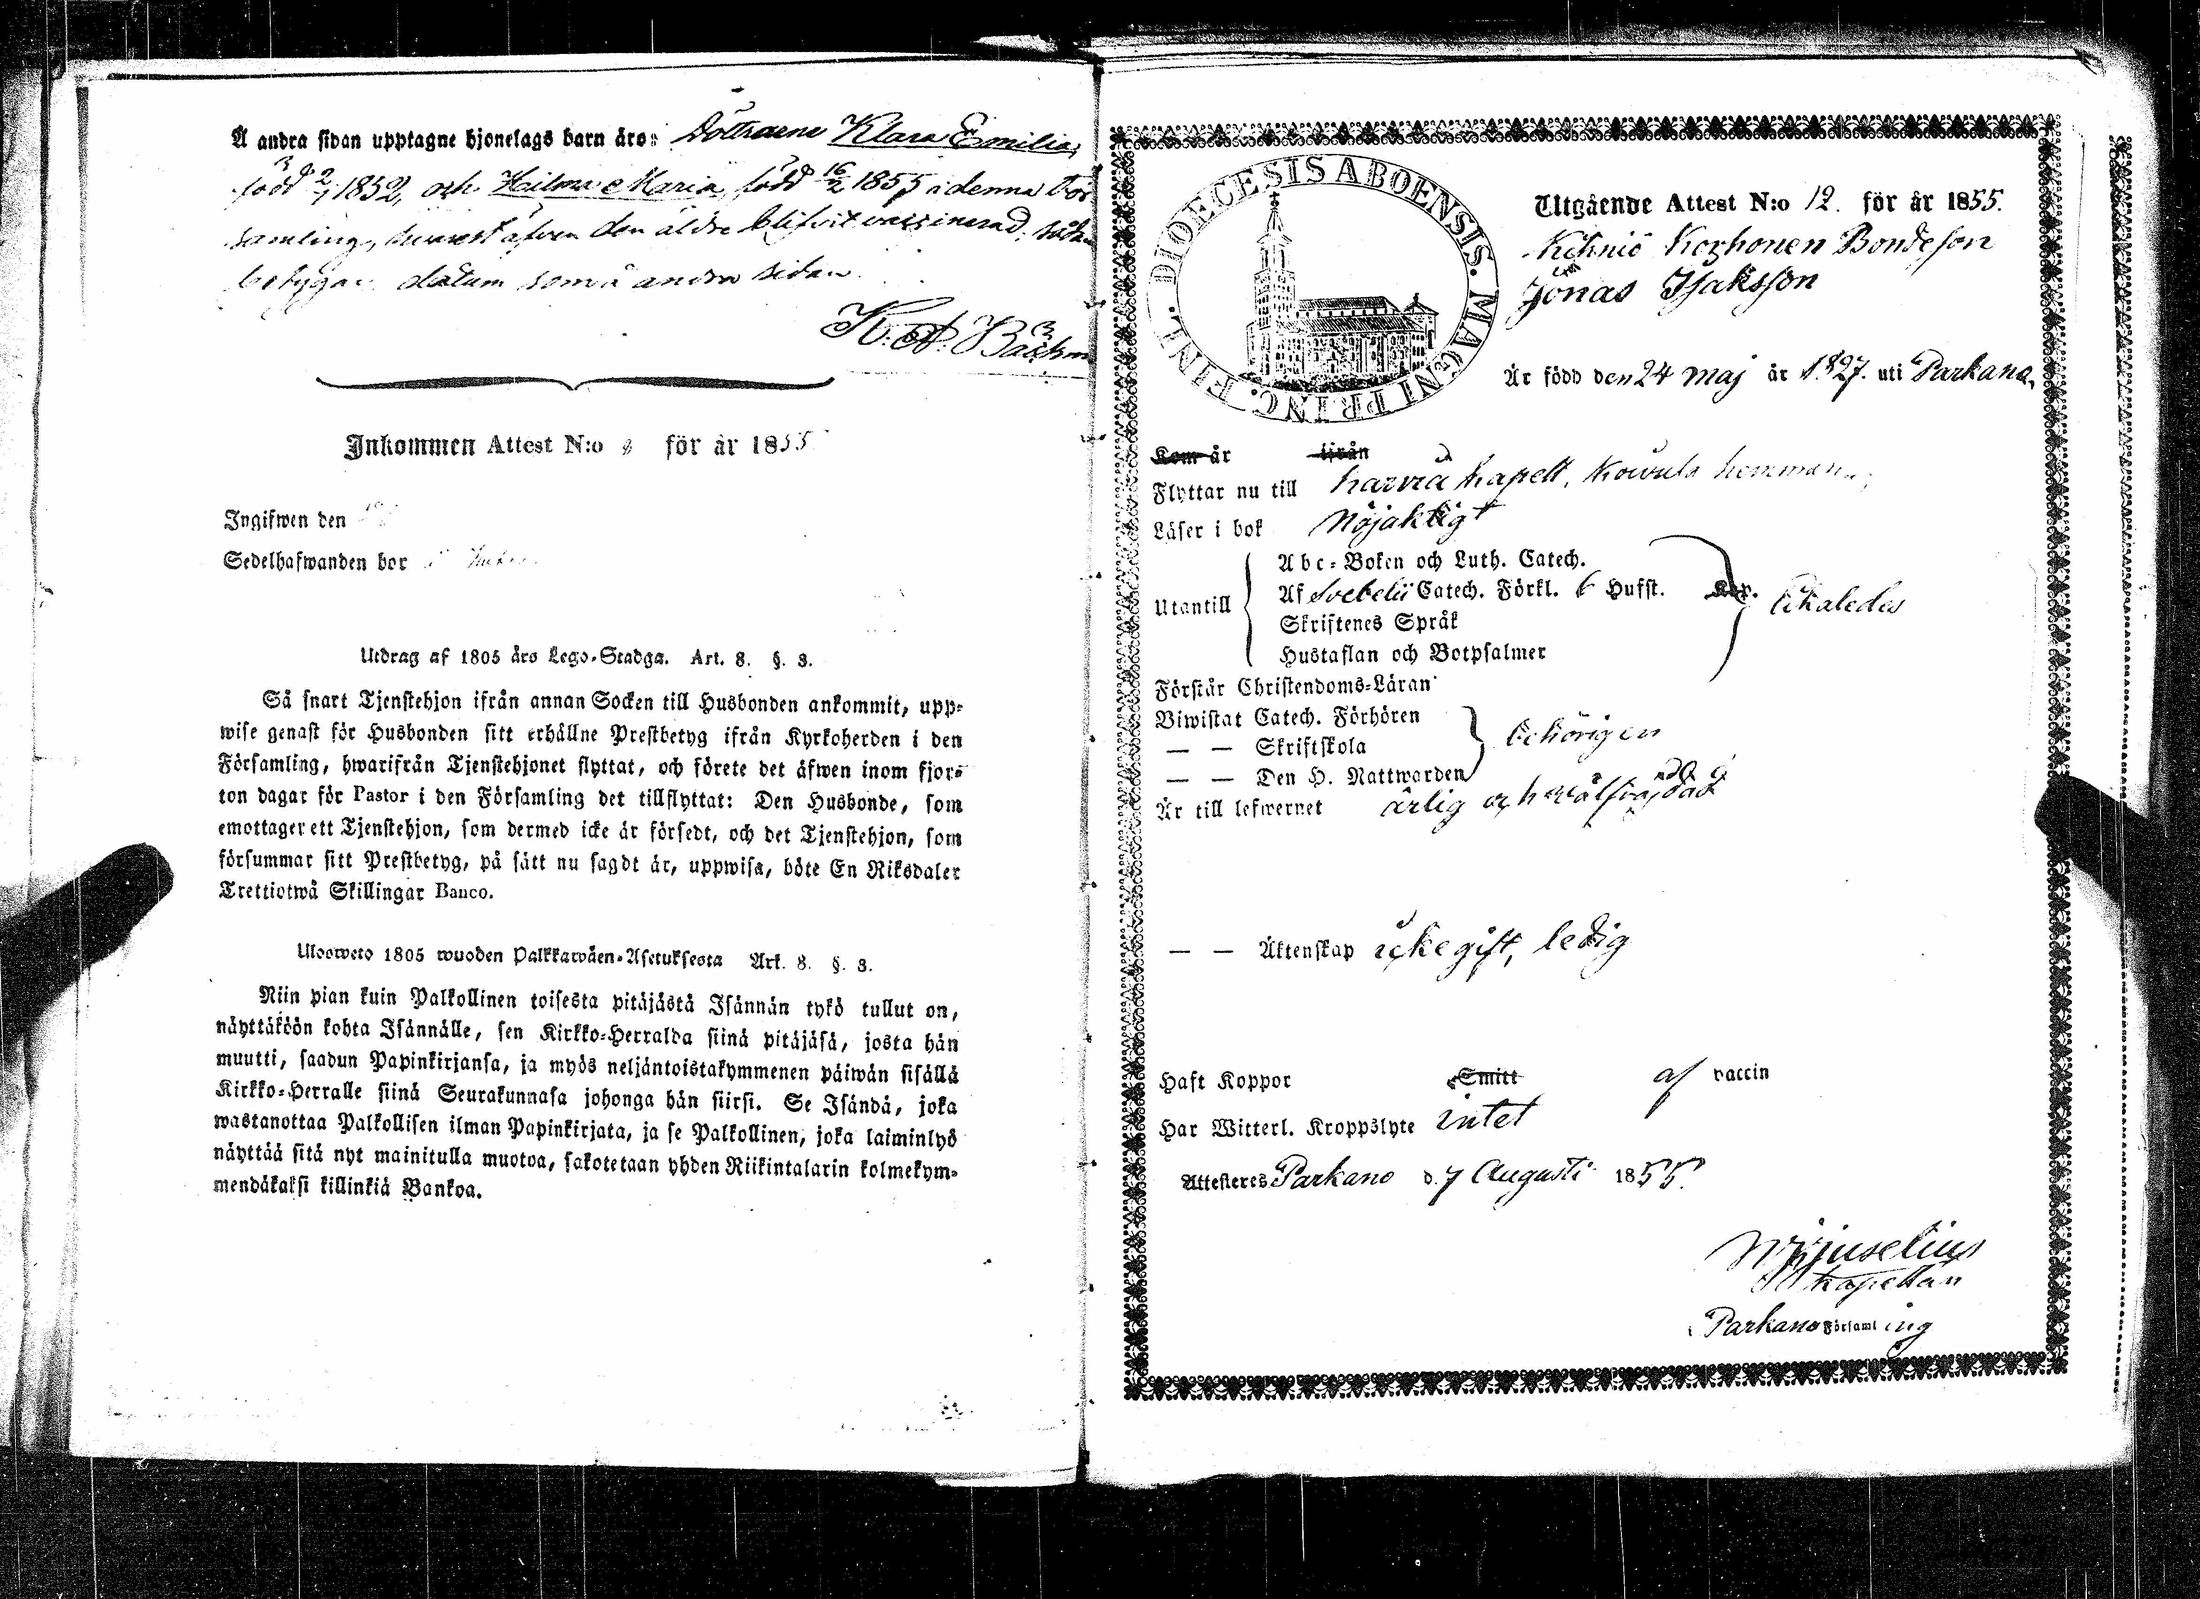 Å andra sidan upptagne hjonelags barn äro: Döttrarne Klara Emilia,
född 2/1 1852, och Hilma Maria född 16/2 1855 i denna För
samling, hvarest äfven den äldre blifvit vaccinerad;
betygar datum som å andra sidan.
K. A. Bäckm
Inkommen Attest N:o för år 1855
Ingifwen den
Sedelhafwanden bor
Utdrag af 1805 års Lego-Stadga. Art. 8. §. 3.
Så snart Tjenstehjon ifrån annan Socken till Husbonden ankommit, upp-
wise genast för Husbonden sitt erhållne Prestbetyg ifrån Kyrkoherden i den
Församling, hwarifrån Tjenstehjonet flyttat, och förete det äfwen inom fjor-
ton dagar för Pastor i den Församling det tillflyttat: Den Husbonde, som
emottager ett Tjenstehjon, som dermed icke är försedt, och det Tjenstehjon, som
försummar sitt Prestbetyg, på sätt nu sagdt är, uppwisa, böte En Riksdaler
Trettiotwå Skillingar Banco.
Ulosweto 1805 wuoden Palkkawäen-Asetuksesta Art. 8. §. 3.
Niin pian kuin Palkollinen toisesta pitäjästä Isännän tykö tullut on,
näyttäköön kohta Isännälle, sen Kirkko-Herralda siinä pitäjäsä, josta hän
muutti, saadun Papinkirjansa, ja myös neljäntoistakymmenen päiwän sisällä
Kirkko-Herralle siinä Seurakunnasa johonga hän siirsi. Se Isändä, joka
wastanottaa Palkollisen ilman Papinkirjata, ja se Palkollinen, joka laiminlyö
näyttää sitä nyt mainitulla muotoa, sakotetaan yhden Riikintalarin kolmekym-
mendäkaksi killinkiä Bankoa.
DIOECESIS ABOENSIS. MAGNI PRINC. FINL.
Utgående Attest N:o 12. för år 1855.
Kihniö Korhonen Bondeson
Jonas Isaksson
Är född den 24 Maj år 1827. uti Parkano,
Kom år ifrån
Flyttar nu till Karvia Kapell, hemman
Läser i bok Nöjaktigt
Utantill
Abc-Boken och Luth. Catech.
Af Svebelii Catech. Förkl. 6 Hufst. Kap.
Skriftenes Språk
Hustaflan och Botpsalmer
likaledes
Förstår Christendoms-Läran
Biwistat Catech. Förhören
— — Skriftskola
— — Den H. Nattwarden
behörigen
Är till lefwernet ärlig och välfrejdad
— — Äktenskap icke gift, ledig
Haft Koppor Smitt af vaccin
Har Witterl. Kroppslyte intet
Attesteres Parkano d. 7 Augusti 1855.
Juselius
Kapellan
i Parkano Församling